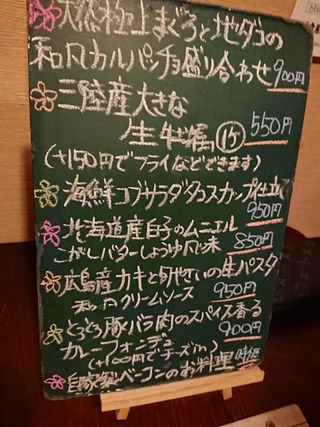 天然極上まぐろと地ダコの
和風カルパッチョ盛り合わせ 900円
三陸産大きな
生牡蠣 1ケ 550円
(+150円でフライなどできます)
海鮮コブサラダタコスカップ仕立て
950円
北海道産白子のムニエル
こがしバターしょうゆ風味 850円
広島産カキと旬やさいの生パスタ
和風クリームソース 950円
とろとろ豚バラ肉のスパイス香る
カレーフォンデュ 900円
(+100円でチーズin)
自家製ベーコンのお料理 時価